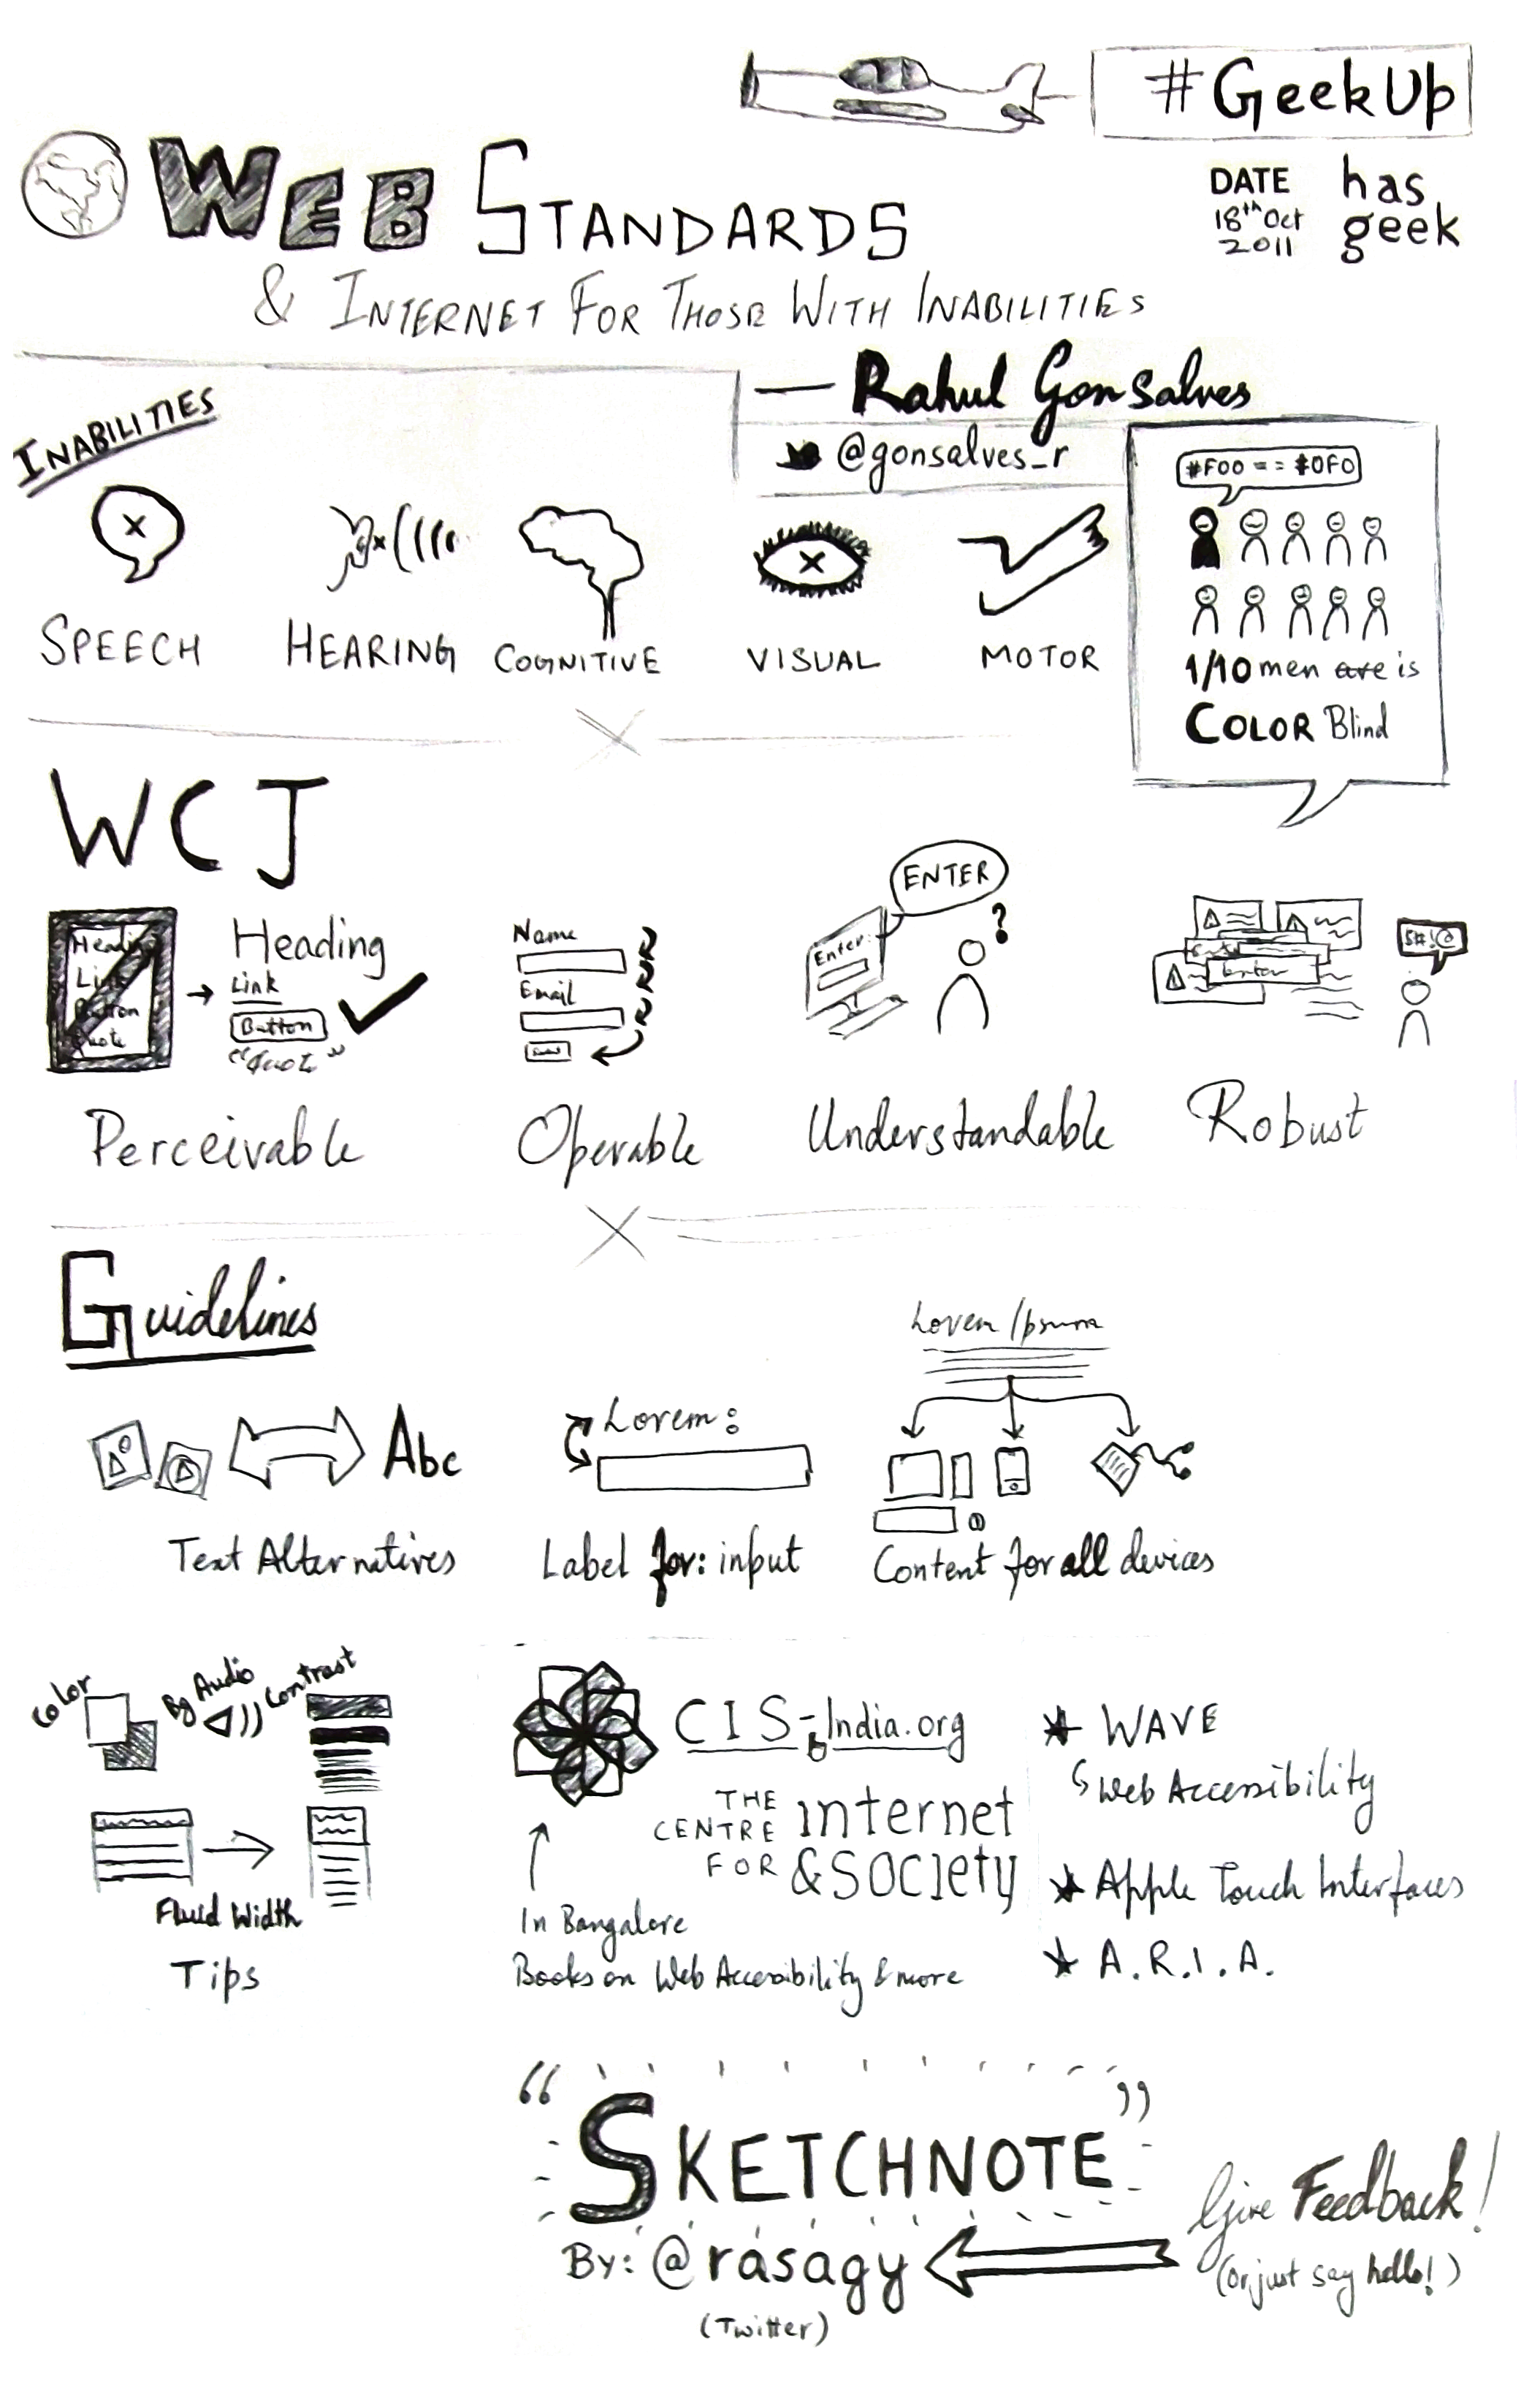 #GeekUp
WEB STANDARDS
DATE
18th Oct
2011
has
geek
& INTERNET FOR THOSE WITH INABILITIES
— Rahul Gonsalves
@gonsalves_r
INABILITIES
SPEECH
HEARING
COGNITIVE
VISUAL
MOTOR
#F00 == #0F0
1/10 men are is
COLOR Blind
WCJ
Heading
Link
Button
Quote
Heading
Link
Button
"Quote"
Name
Email
Enter:
ENTER
?
Enter
$#!@
Perceivable
Operable
Understandable
Robust
Guidelines
Abc
Lorem:
Lorem Ipsum
Text Alternatives
Label for: input
Content for all devices
Color
Bg Audio
Contrast
Fluid Width
Tips
CIS-India.org
THE
CENTRE
FOR
internet
& society
In Bangalore
Books on Web Accessibility & more
WAVE
Web Accessibility
Apple Touch Interfaces
A.R.I.A.
"SKETCHNOTE"
By: @rasagy
(Twitter)
Give Feedback!
(Or just say hello!)